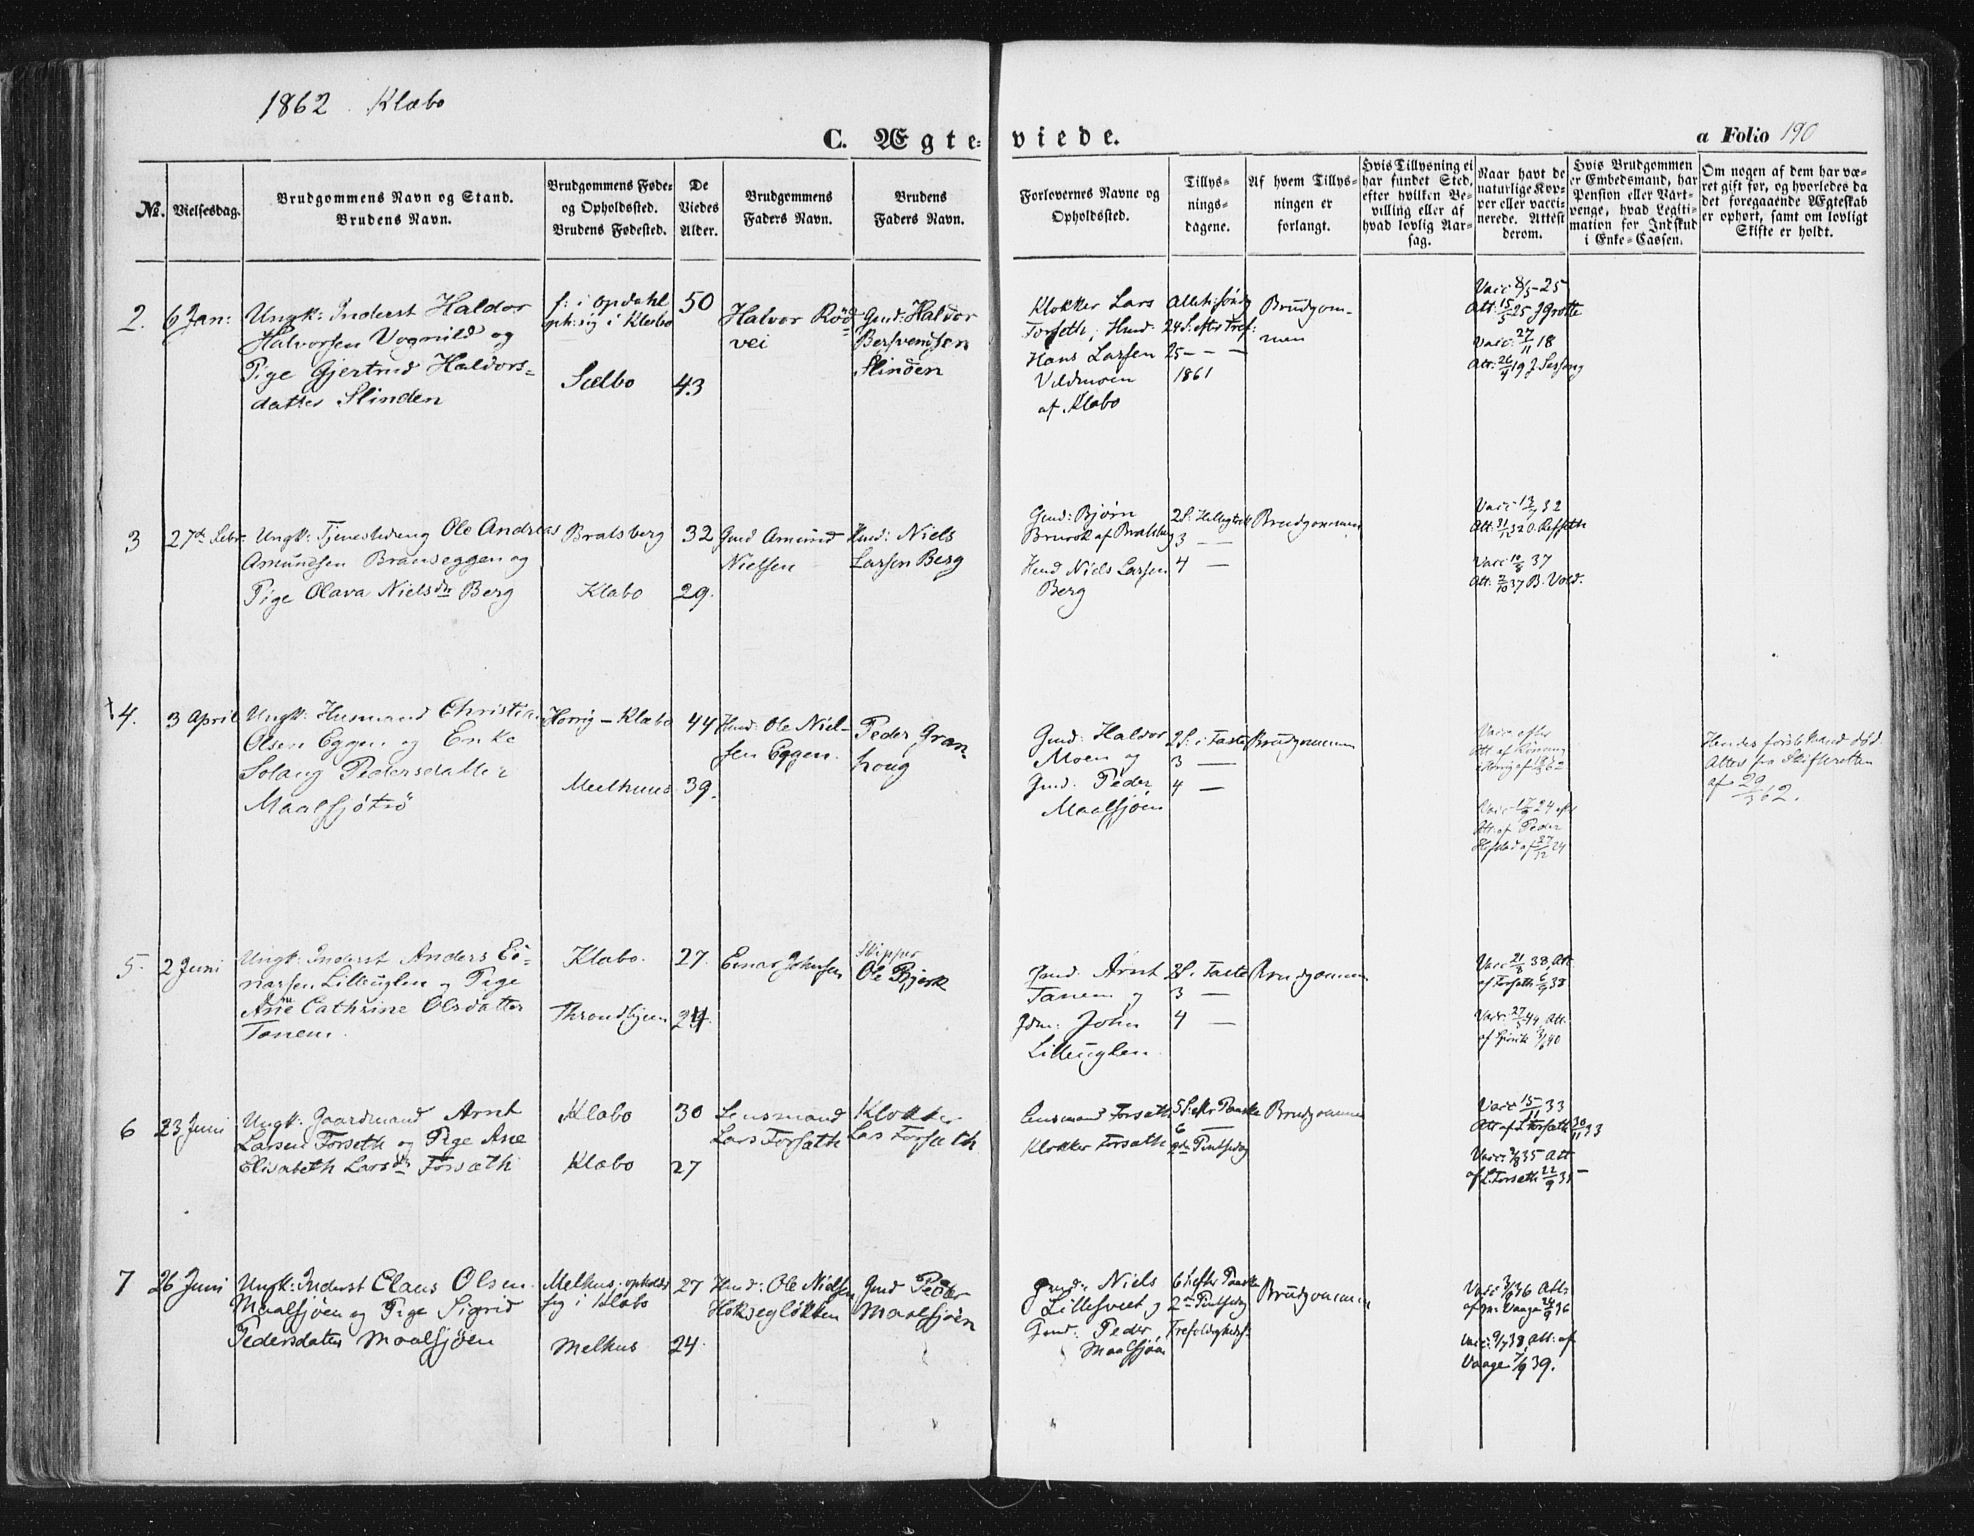 1862. Klæbo
C. Ægteviede.
a Folio 190
No.
Vielsesdag.
Brudgommens Navn og Stand.
Brudens Navn.
Brudgommens Føde-
og Opholdssted.
Brudens Fødested.
De
Viedes
Alder.
Brudgommens
Faders Navn.
Brudens
Faders Navn.
Forlovernes Navne og
Opholdssted.
Tillys-
nings-
dagene.
Af hvem Tillys-
ningen er
forlangt.
Hvis Tillysning ei
har fundet Sted,
efter hvilken Be-
villing eller af
hvad lovlig Aar-
sag.
Naar havt de
naturlige Kop-
per eller vacci-
nerede. Attest
derom.
Hvis Brudgommen
er Embedsmand, har
Pension eller Vart-
penge, hvad Legiti-
mation for Indskud
i Enke-Cassen.
Om nogen af dem har væ-
ret gift før, og hvorledes da
det foregaaende Ægteskab
er ophørt, samt om lovligt
Skifte er holdt.
2. 6 Jan:
Ungk: Inderst Haldor
Halvorsen Vognild og
Pige Gjertrud Haldors-
datter Slinden
f: i Opdahl
oph: sig i Klæbo
Sælbo
50
43
Halvor Röd-
vei
Gmd: Halvor
Bersvendsen
Slinden
Klokker Lars
Forseth, Husm.
Hans Larsen
Vildmoen
af Klæbo
24 S. efter Tref:
25 - - -
1861
Brudgom-
men
Vacc 8/5 - 25
Att: 15/5 25 J Grotte
Vacc: 27/11 18
Att: 26/4 19 J. Sessong
3 27de Febr.
Ungk: Tjenestedreng Ole Andreas
Amundsen Branseggen og
Pige Olava Nielsdr Berg
Bratsberg
Klæbo
32
29.
Gmd Amund
Nielsen
Husmd: Niels
Larsen Berg
Gmd: Bjørn
Brurok af Bratsberg
Husmd Niels Larsen
Berg
3 —
4 —
Brudgommen
Vacc 13/7 32
Vacc: 10/8 37
Att: 2/10 37 B. Vold.
4. 3 April
Ungk: Husmand Christian
Olsen Eggen og Enke
Solaug Pedersdatter
Maalsjøtrö
Horrig - Klæbo
Meelhuus
44
39.
Husmd: Ole Niel-
sen Eggen.
Peder Gran-
houg
Gmd: Haldor
Moen og
Gmd: Peder
Maalsjøen
2 S: i Faste
3 —
4 —
Brudgommen
Vacc efter
Vacc: 17/9 24 eft
Att: af Peder
Hefstad af 27/12 24
Hendes første Mand død.
Attest fra Skifteretten
af 29/3 62.
5. 2 Juni
Ungk: Inderst Anders Ei-
narsen Lilleuglen og Pige
Ane Cathrine Olsdatter
Tanem.
Klæbo.
Throndhjem
27.
24.
Einar Johnsen
Skipper
Ole Bjerk
Gmd: Arnt
Tanem og
Gdm: John
Lilleuglen.
2 S. i Faste
3 —
4 —
Brudgommen
Vacc: 21/8 38, Att:
af Forseth 6/9 38
Vacc: 27/5 44, Att:
6 23 Juni
Ungk: Gaardmand Arnt
Larsen Forseth og Pige Ane
Elisabeth Larsdr Forsæth
Klæbo
Klæbo
30
27
Lensmand
Lars Forsæth
Klokker
Lars Forsæth
Lensmand Forsæth
Klokker Forsæth
5 S. efter Paaske
6 —
2den Pintsedag
Brudgommen
Vacc 15/11 33
Att af L Forsæth 30/11 33
Vacc: 9/8 35 Att
af L. Forsæth 22/9 35 —
7 26 Juni
Ungk: Inderst Claus Olsen
Maalsjöen og Pige Sigrid
Pedersdatter Maalsjøen
Melhus, opholdr
sig i Klæbo
Melhus
27
24.
Husmd: Ole Nielsen
Hoksegløkken
Gmd Peder
Maalsjøen
Gmd: Niels
Lillesveet og
Gmd: Peder
Maalsjøen
6 S efter Paaske
2den Pintsedag
Trefoldighedsf.
Brudgommen
Vacc 3/9 36 Atts
af M: Vaage 24/9 36
Vacc: 9/7 38, Att: af
Vaage 7/9 39.